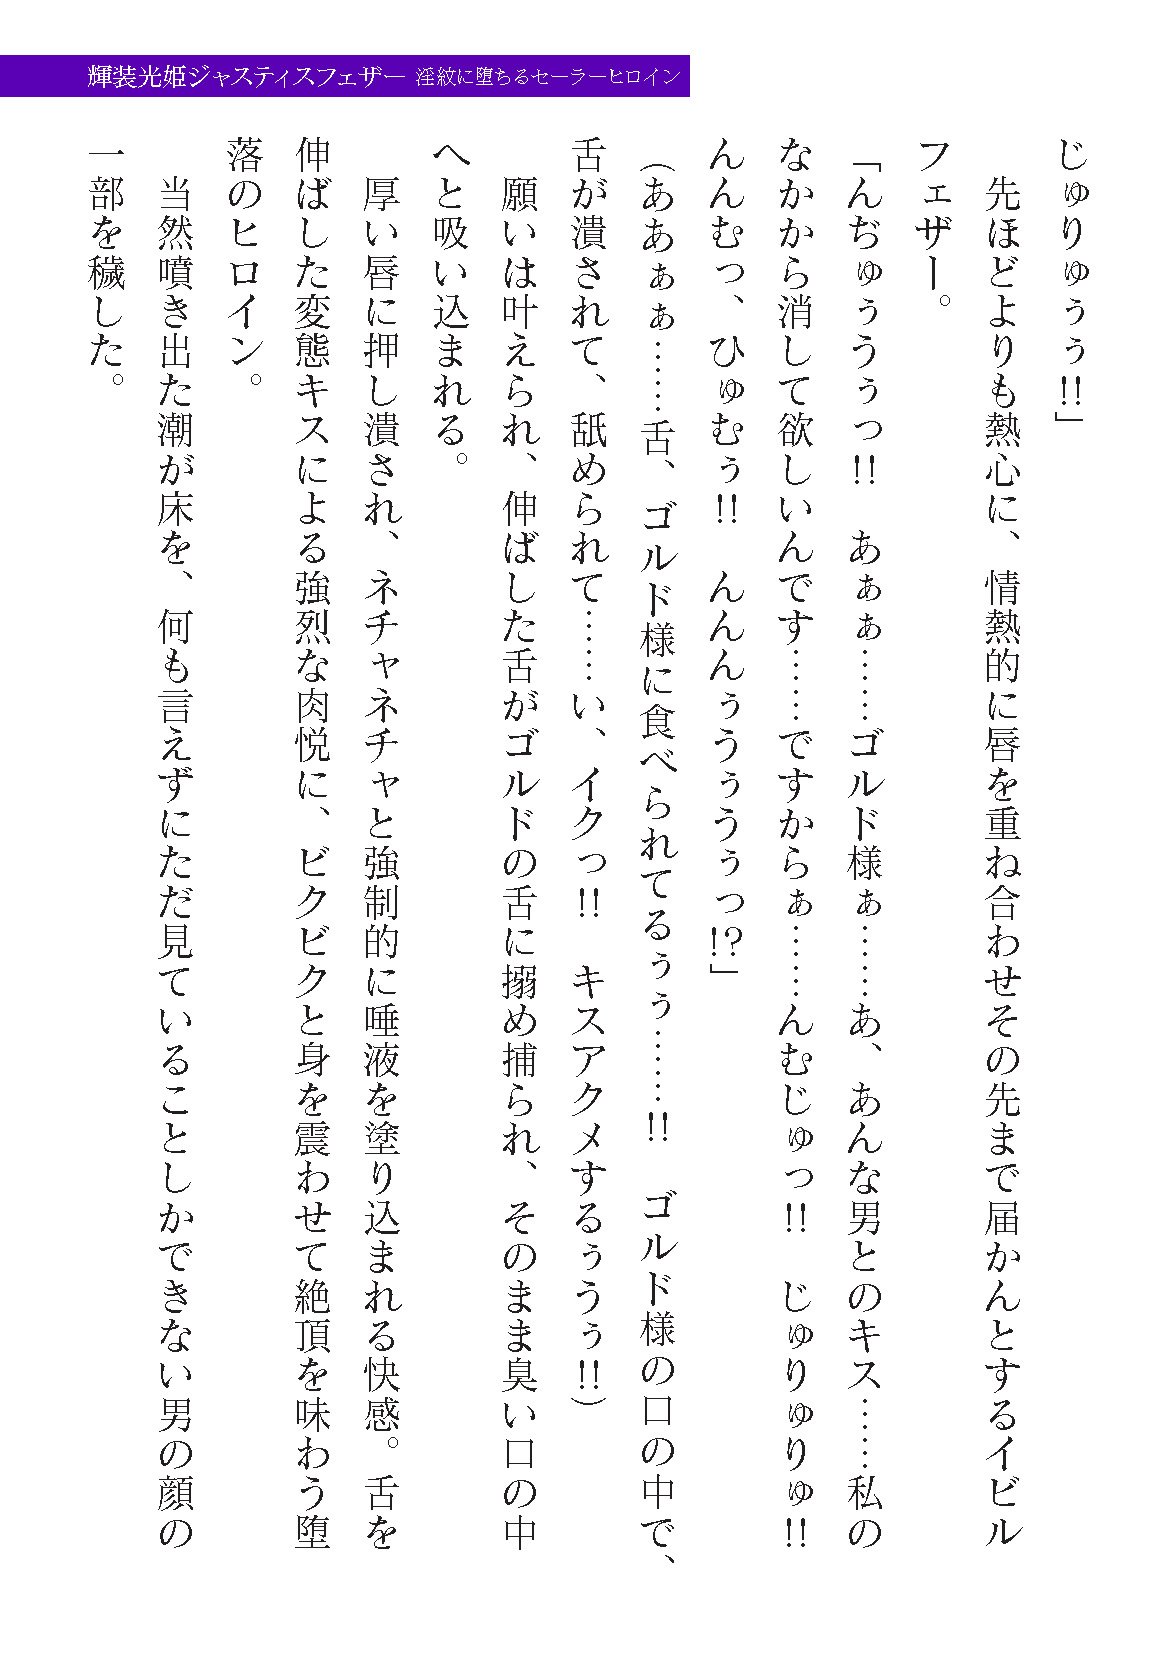 輝装光姫ジャスティスフェザー 淫紋に堕ちるセーラーヒロイン
じゅりゅぅぅ!!」
　先ほどよりも熱心に、情熱的に唇を重ね合わせその先まで届かんとするイビル
フェザー。
「んぢゅぅうぅっ!!　あぁぁ……ゴルド様ぁ……あ、あんな男とのキス……私の
なかから消して欲しいんです……ですからぁ……んむじゅっ!!　じゅりゅりゅ!!
んんむっ、ひゅむぅ!!　んんんぅうぅうぅっ!?」
（ああぁぁ……舌、ゴルド様に食べられてるぅぅ……!!　ゴルド様の口の中で、
舌が潰されて、舐められて……い、イクっ!!　キスアクメするぅうぅ!!）
　願いは叶えられ、伸ばした舌がゴルドの舌に搦め捕られ、そのまま臭い口の中
へと吸い込まれる。
　厚い唇に押し潰され、ネチャネチャと強制的に唾液を塗り込まれる快感。舌を
伸ばした変態キスによる強烈な肉悦に、ビクビクと身を震わせて絶頂を味わう堕
落のヒロイン。
　当然噴き出た潮が床を、何も言えずにただ見ていることしかできない男の顔の
一部を穢した。